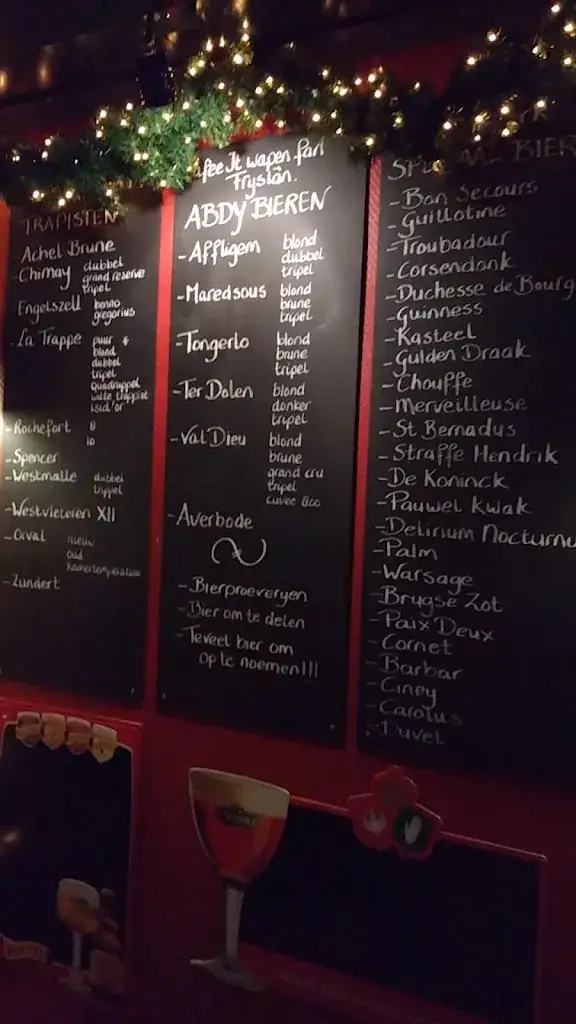 TRAPISTEN
Achel Brune
- Chimay dubbel
grand reserve
tripel
Engelszell benno
gregorius
- La Trappe puur
blond
dubbel
tripel
quadruppel
witte trappist
isid'or
- Rochefort 8
10
- Spencer
- Westmalle dubbel
trippel
- Westvleteren XII
- Orval nieuw
oud
kamertemperatuur
- Zundert
afee It wapen fan
Fryslân.
ABDY BIEREN
- Affligem blond
dubbel
tripel
- Maredsous blond
brune
tripel
- Tongerlo blond
brune
tripel
- Ter Dolen blond
donker
tripel
- Val Dieu blond
brune
grand cru
tripel
cuvee 800
- Averbode
- Bierproevergen
- Bier om te delen
- Teveel bier om
op te noemen!!!
BIER
- Bon Secours
- Guillotine
- Troubadour
- Corsendonk
- Duchesse de Bourg
- Guinness
- Kasteel
- Gulden Draak
- Chouffe
- Merveilleuse
- St Bernadus
- Straffe Hendrik
- De Koninck
- Pauwel Kwak
- Delirium Nocturnu
- Palm
- Warsage
- Brugse Zot
- Paix Deux
- Cornet
- Barbar
- Ciney
- Carolus
- Duvel